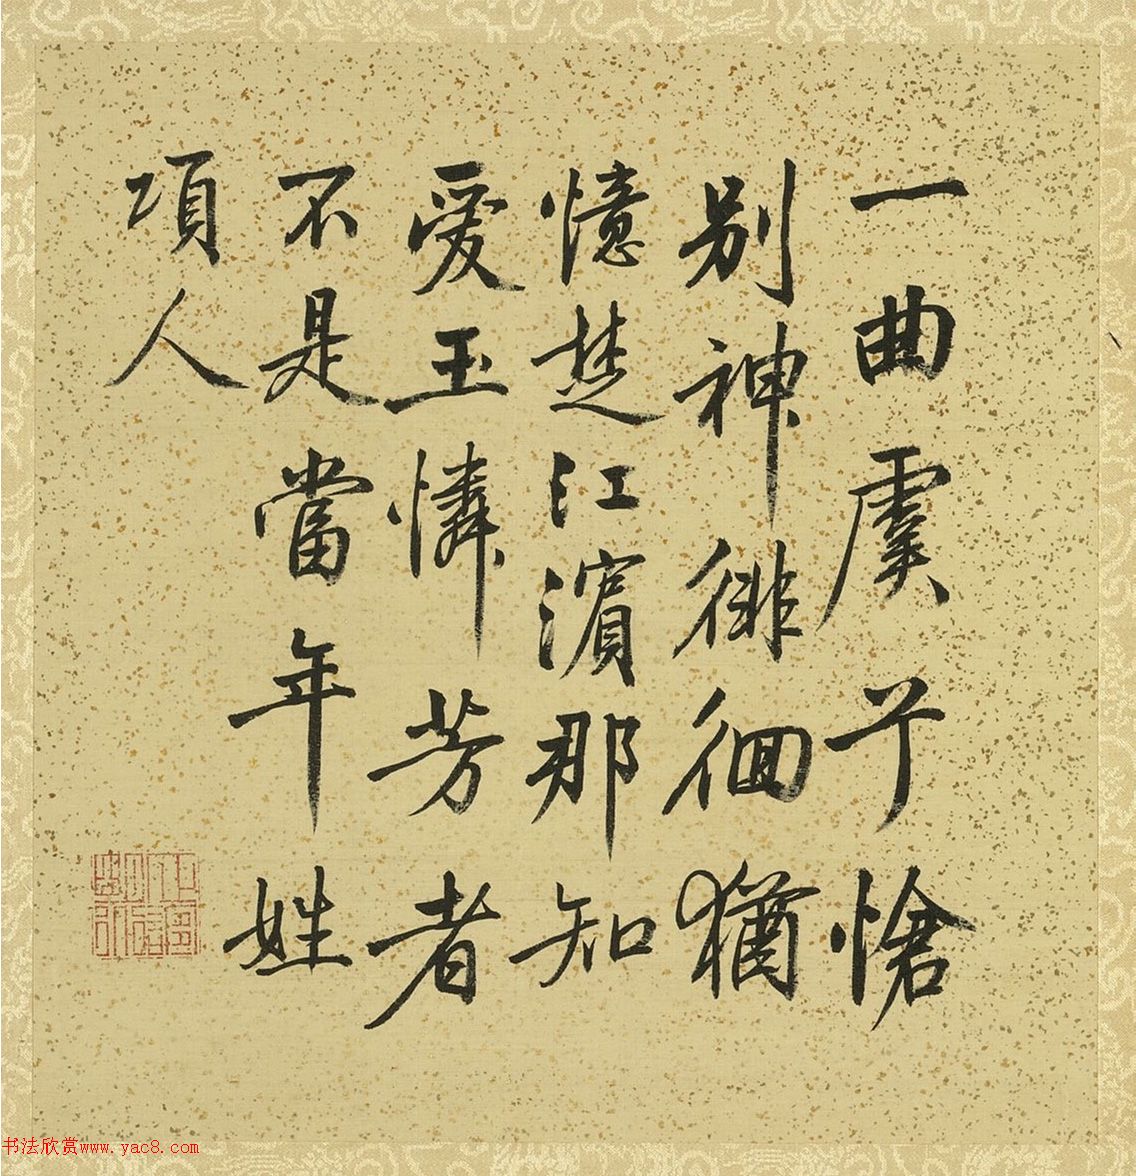 一曲虞兮愴
别神徘徊猶
憶楚江濱那知
愛玉憐芳者
不是當年姓
項人
书法欣赏www.yac8.com